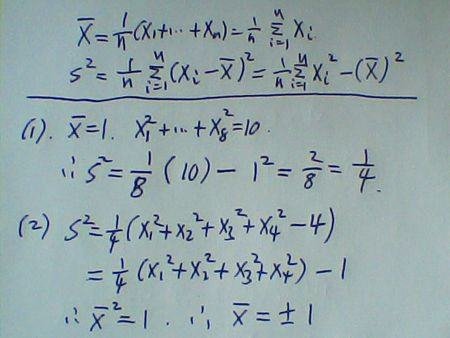 X̄ = 1/n (X₁+…+Xₙ) = 1/n Σᵢ₌₁ⁿ Xᵢ.
S² = 1/n Σᵢ₌₁ⁿ (Xᵢ − X̄)² = 1/n Σᵢ₌₁ⁿ Xᵢ² − (X̄)²
(1). X̄=1. X₁²+…+X₈²=10.
∴ S² = 1/8 (10) − 1² = 2/8 = 1/4.
(2) S² = 1/4 (X₁²+X₂²+X₃²+X₄²−4)
= 1/4 (X₁²+X₂²+X₃²+X₄²) − 1
∴ X̄² = 1. ∴ X̄ = ±1